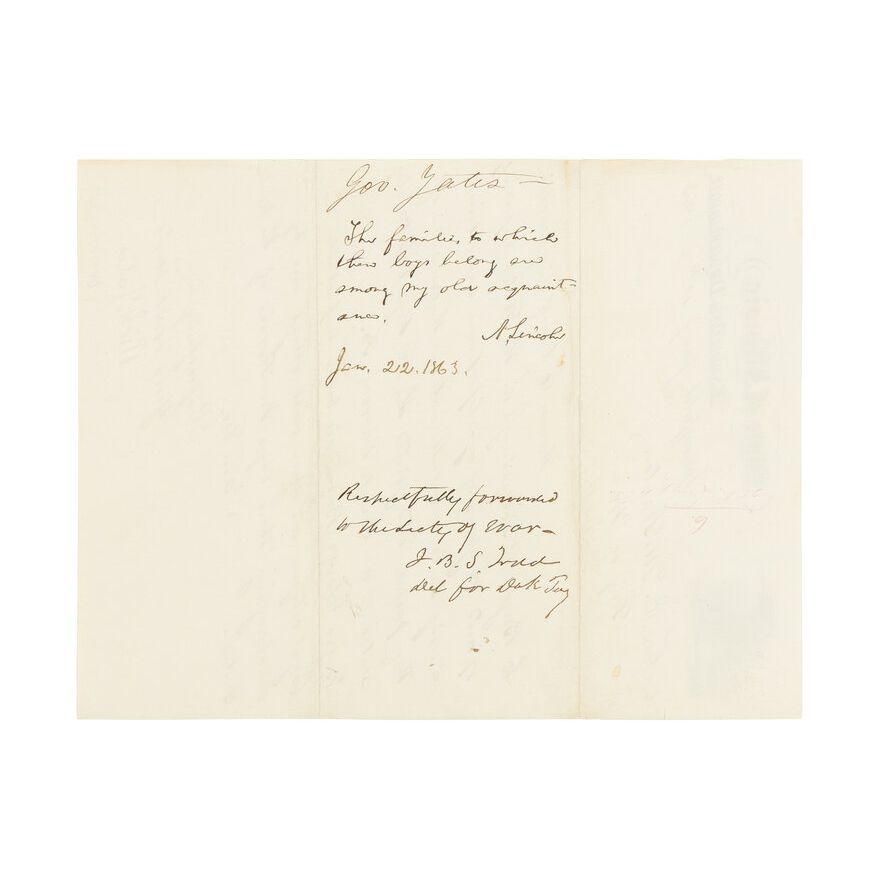 Gov. Yates —
The families, to which
these boys belong are
among my old acquaint-
ances.
A. Lincoln
Jan. 22. 1863.
Respectfully forwarded
to the Secty of War —
J. B. S. Todd
Del for Dak Ty
9